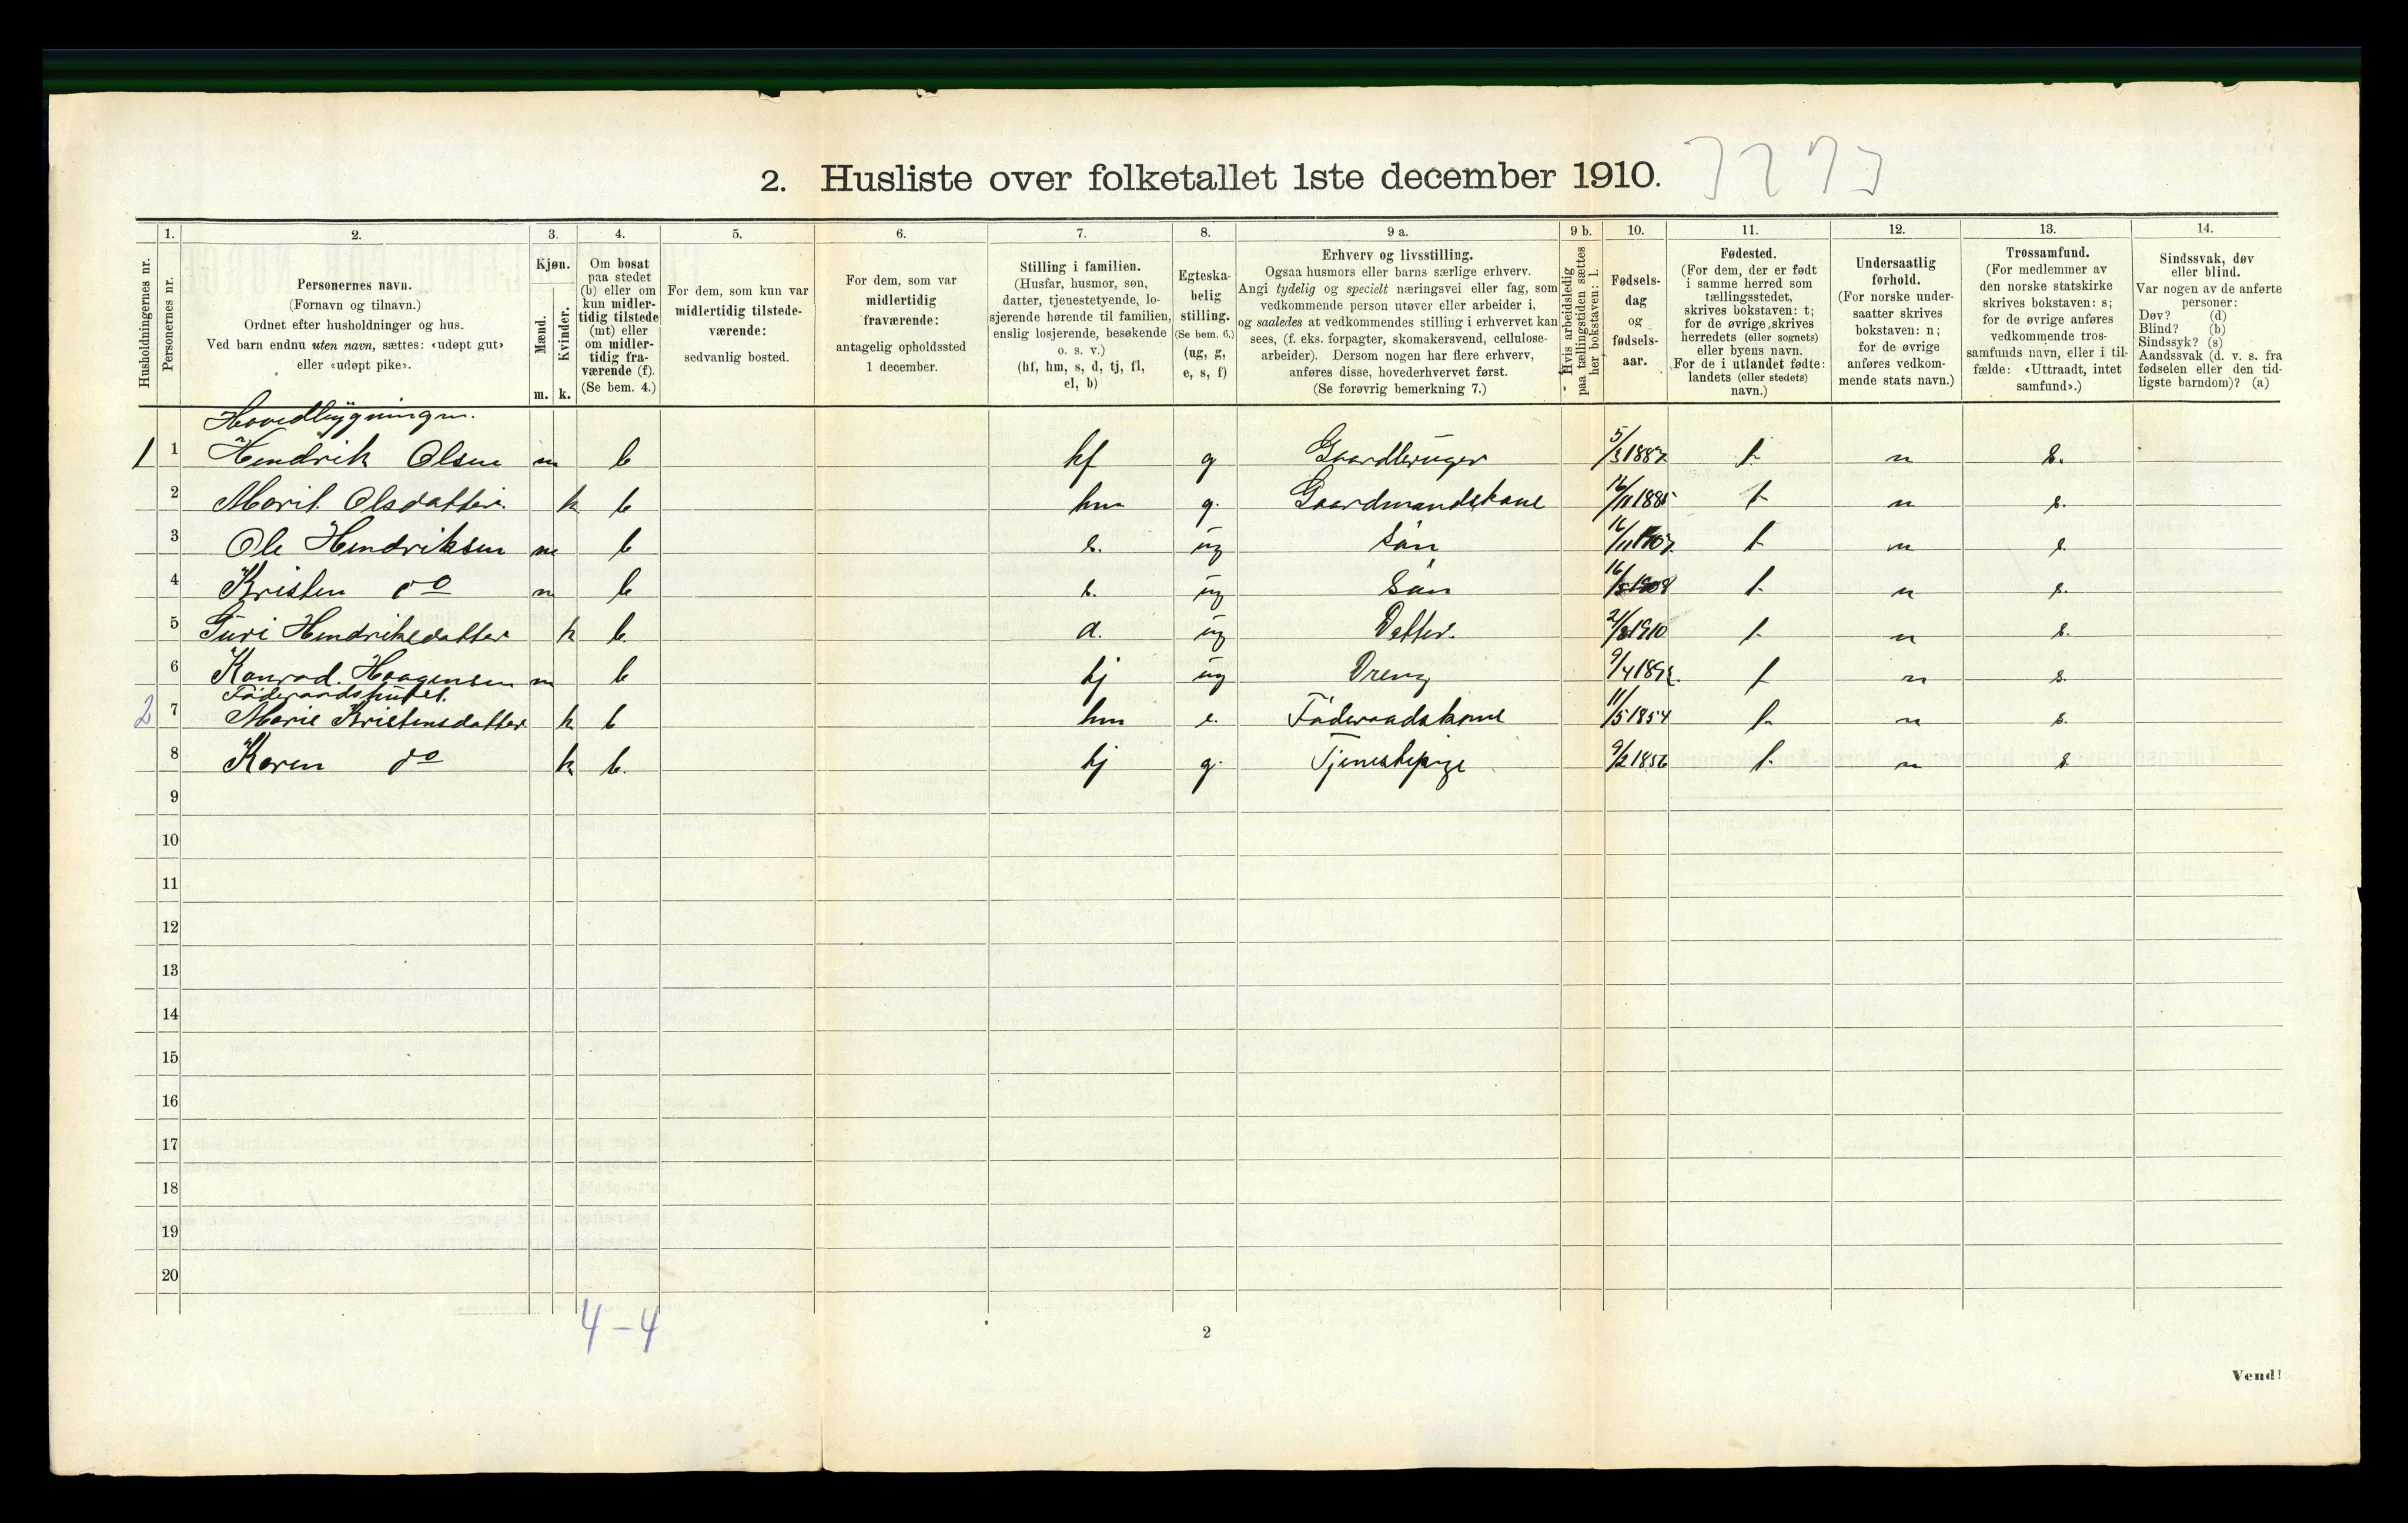 2. Husliste over folketallet 1ste december 1910.
1. 2. 3. 4. 5. 6. 7. 8. 9 a. 9 b. 10. 11. 12. 13. 14.
Husholdningernes nr.
Personernes nr.
Personernes navn.
(Fornavn og tilnavn.)
Ordnet efter husholdninger og hus.
Ved barn endnu uten navn, sættes: «udøpt gut»
eller «udøpt pike».
Kjøn.
Mænd.
Kvinder.
m. k.
Om bosat
paa stedet
(b) eller om
kun midler-
tidig tilstede
(mt) eller
om midler-
tidig fra-
værende (f).
(Se bem. 4.)
For dem, som kun var
midlertidig tilstede-
værende:
sedvanlig bosted.
For dem, som var
midlertidig
fraværende:
antagelig opholdssted
1 december.
Stilling i familien.
(Husfar, husmor, søn,
datter, tjenestetyende, lo-
sjerende hørende til familien,
enslig losjerende, besøkende
o. s. v.)
(hf, hm, s, d, tj, fl,
el, b)
Egteska-
belig
stilling.
(Se bem. 6.)
(ug, g,
e, s, f)
Erhverv og livsstilling.
Ogsaa husmors eller barns særlige erhverv.
Angi tydelig og specielt næringsvei eller fag, som
vedkommende person utøver eller arbeider i,
og saaledes at vedkommendes stilling i erhvervet kan
sees, (f. eks. forpagter, skomakersvend, cellulose-
arbeider). Dersom nogen har flere erhverv,
anføres disse, hovederhvervet først.
(Se forøvrig bemerkning 7.)
Hvis arbeidsledig
paa tællingstiden sættes
her bokstaven: l.
Fødsels-
dag
og
fødsels-
aar.
Fødested.
(For dem, der er født
i samme herred som
tællingsstedet,
skrives bokstaven: t;
for de øvrige skrives
herredets (eller sognets)
eller byens navn.
For de i utlandet fødte:
landets (eller stedets)
navn.)
Undersaatlig
forhold.
(For norske under-
saatter skrives
bokstaven: n;
for de øvrige
anføres vedkom-
mende stats navn.)
Trossamfund.
(For medlemmer av
den norske statskirke
skrives bokstaven: s;
for de øvrige anføres
vedkommende tros-
samfunds navn, eller i til-
fælde: «Uttraadt, intet
samfund».)
Sindssvak, døv
eller blind.
Var nogen av de anførte
personer:
Døv? (d)
Blind? (b)
Sindssyk? (s)
Aandssvak (d. v. s. fra
fødselen eller den tid-
ligste barndom)? (a)
Hovedbygningen.
1 1 Hendrik Olsen m b hf g Gaardbruger 5/3 1887 t n s.
2 Marit Olsdatter k b hm g. Gaardmandskone 16/11 1885 t n s.
3 Ole Hendriksen m b s. ug Sön 16/11 1907 t n s.
4 Kristen do m b s. ug Sön 16/ 1908 t n s.
5 Guri Hendriksdatter k b. d. ug Datter. 21/8 1910 t n s.
6 Konrad. Haagensen m b tj ug Dreng 9/4 t n s.
Föderaadshuset.
2 7 Marie Kristensdatter k b hm e. Föderaadskone 11/5 1854 t n s.
8 Karen do k b. tj g. Tjenestepige 9/2 1856 t n s.
9
10
11
12
13
14
15
16
17
18
19
20
4-4
2
Vend!